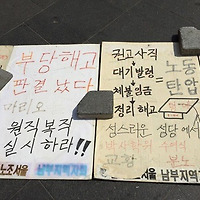 부당해고
판결났다
마리오
원직복직
실시하라!!
노조서울 남부지역지회
권고사직
대기발령
체불임금
정리해고
=노동
탄압
성스러운 성당에서
교황 분노
남부지역지